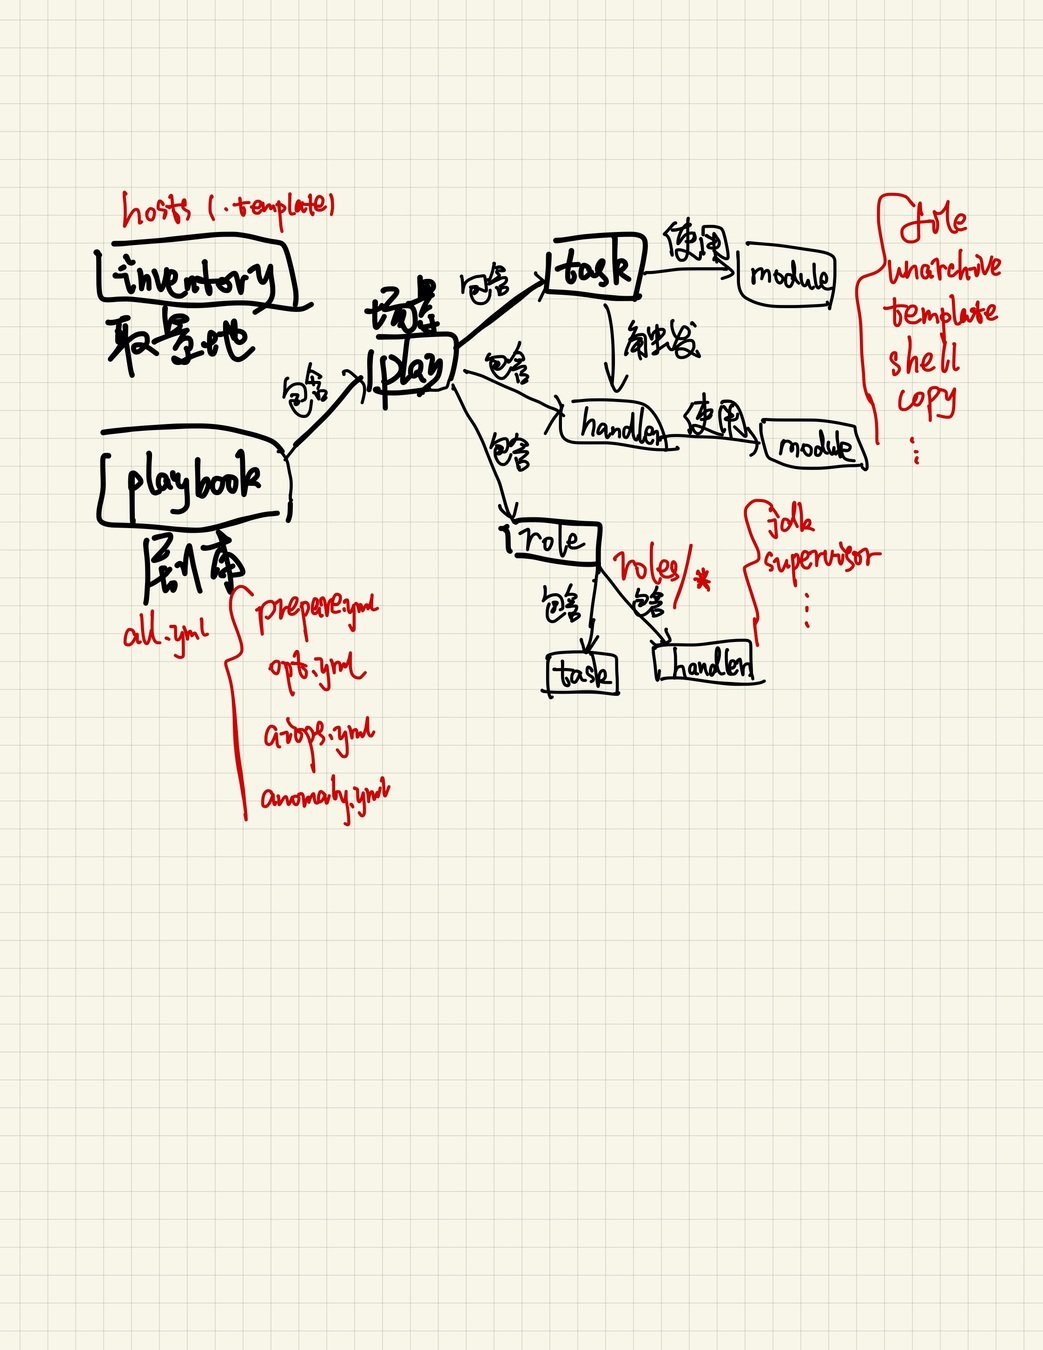 hosts (.template)
inventory
取景地
playbook
剧本
all.yml
prepare.yml
opt.yml
aiops.yml
anomaly.yml
包含
场景
play
包含
task
使用
module
触发
包含
handler
使用
module
包含
role
roles/*
包含
包含
task
handler
file
unarchive
template
shell
copy
⋮
jdk
supervisor
⋮